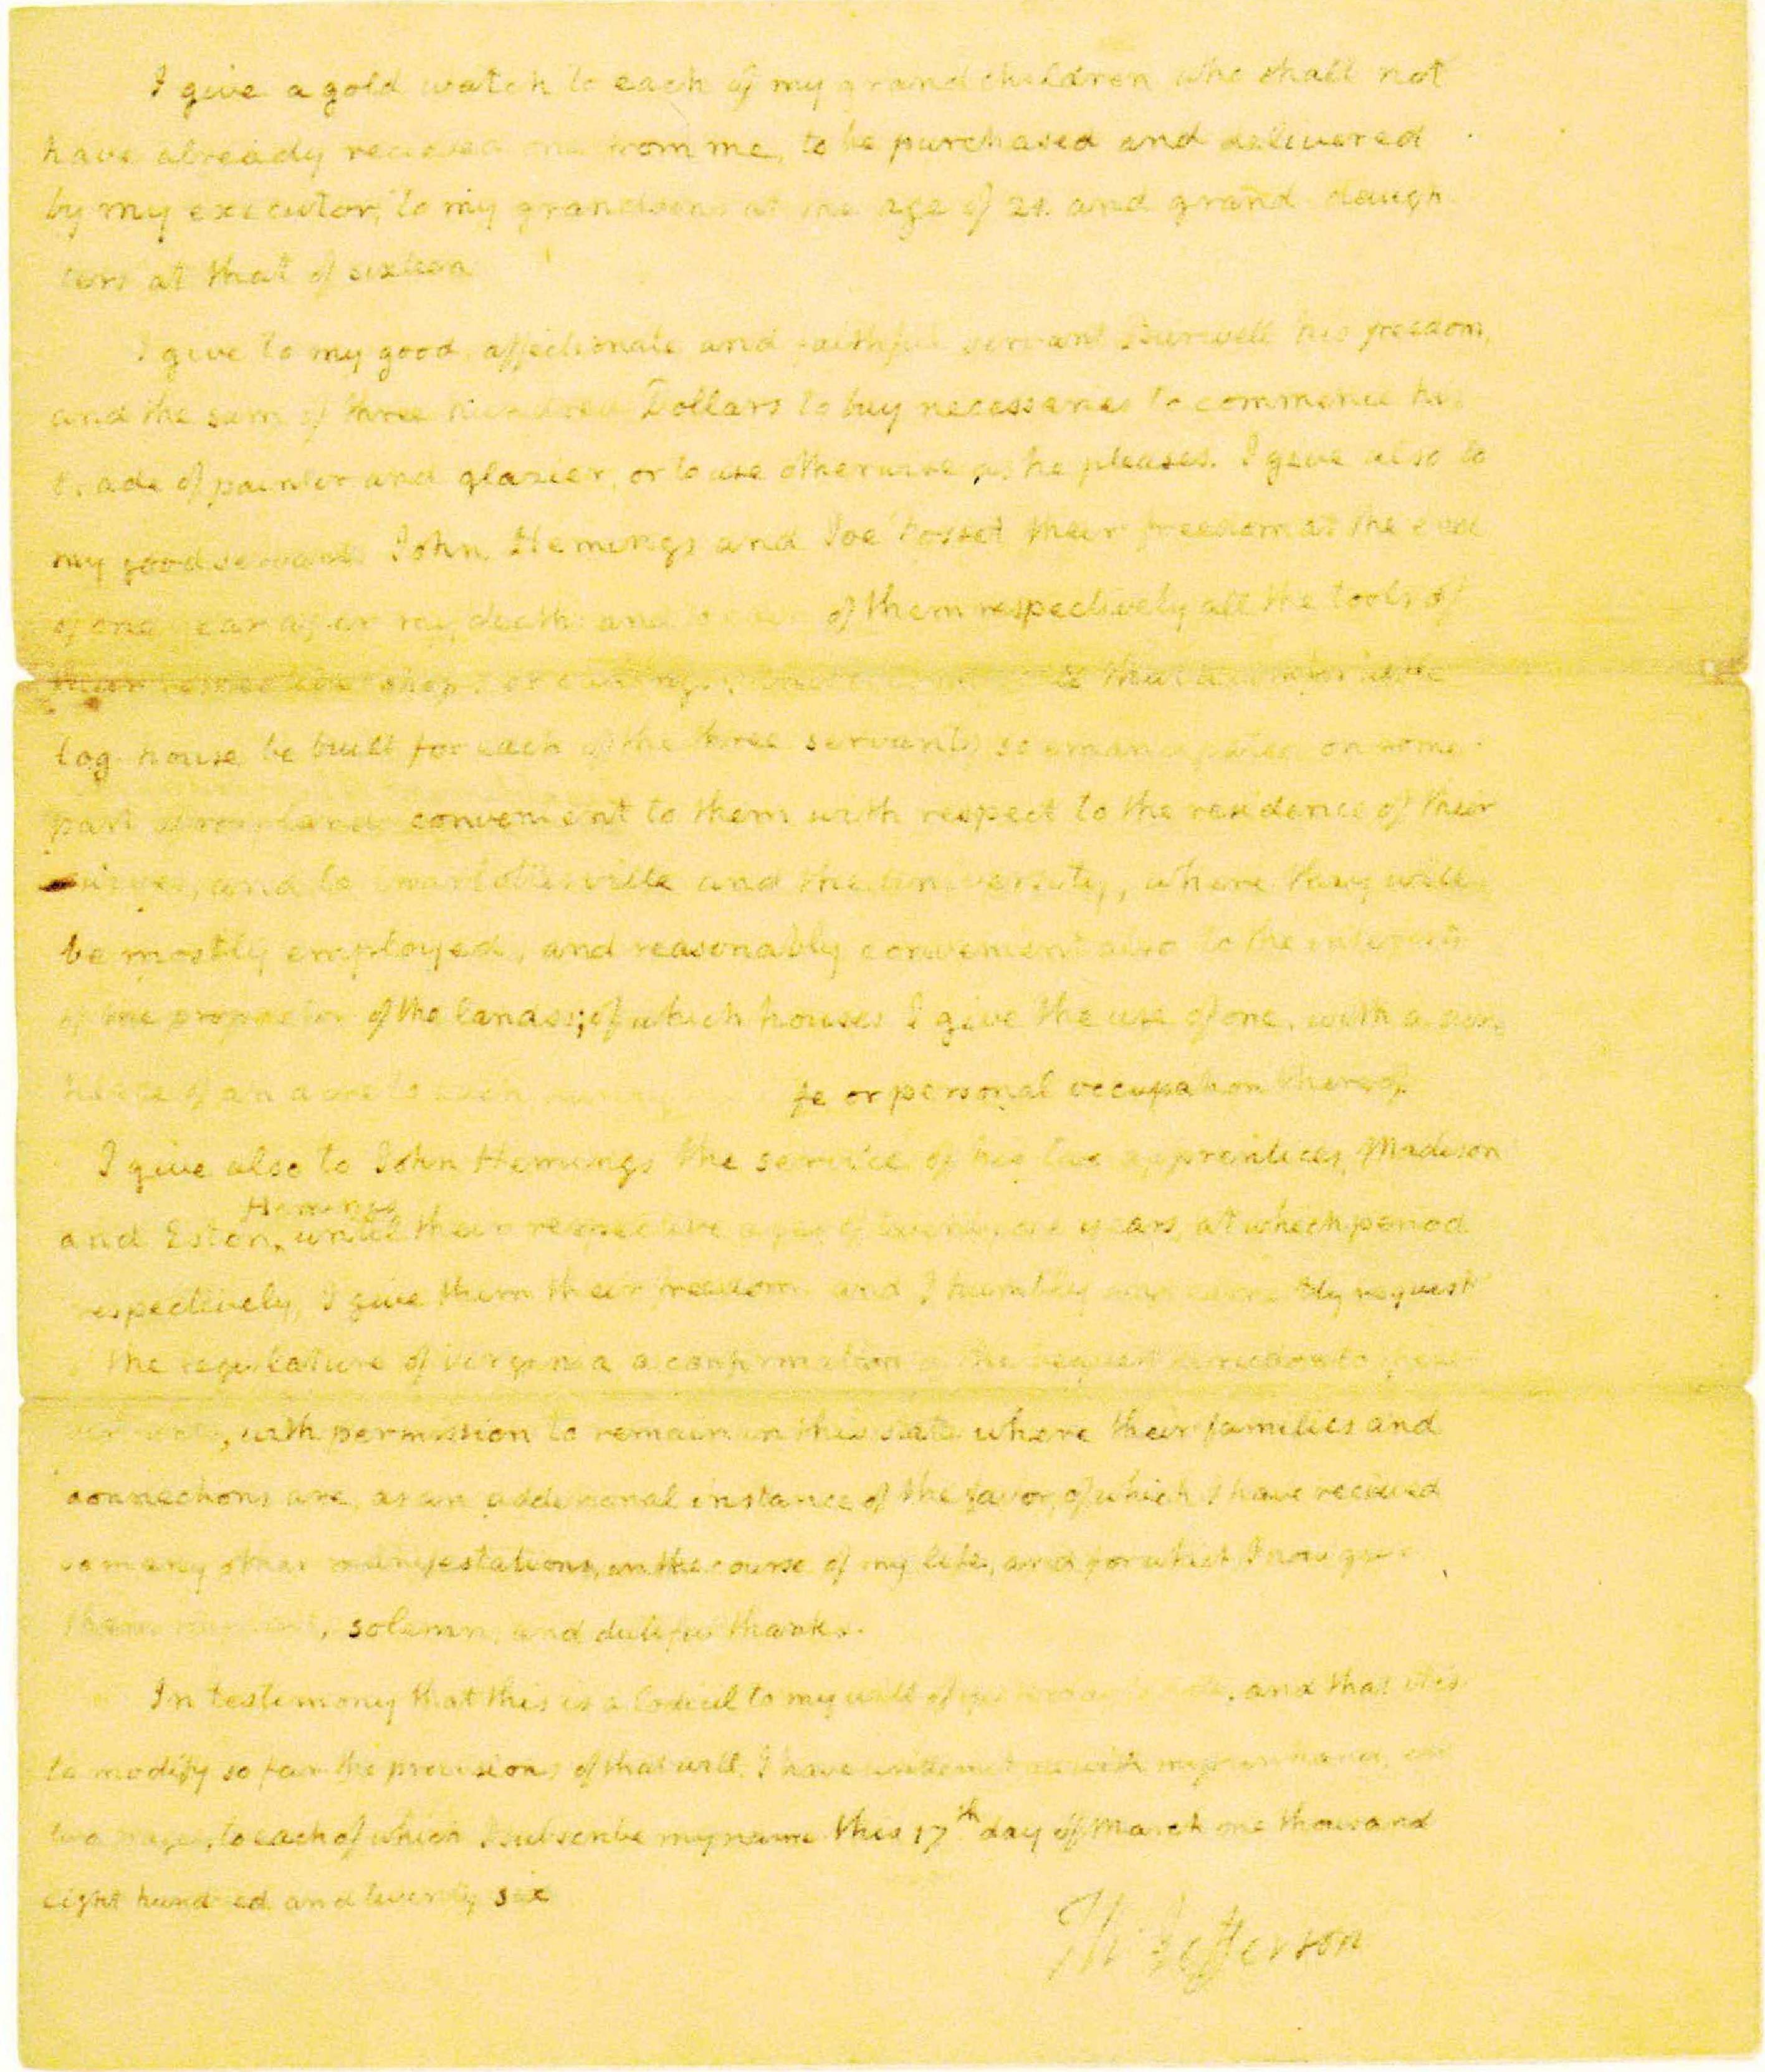 I give a gold watch to each of my grandchildren who shall not
have already recieved one from me, to be purchased and delivered
by my executor, to my grandsons at the age of 21. and grand-daugh
ters at that of sixteen
I give to my good, affectionate and faithful servant Burwell his freedom,
and the sum of three hundred Dollars to buy necessaries to commence his
trade of painter and glazier, or to use otherwise as he pleases. I give also to
my good servants John Hemings and Joe Fosset their freedom at the end
of one year after my death: and to each of them respectively all the tools of
their respective shops or callings: & that a comfortable
log house be built for each of the three servants so emancipated on some
part of my lands convenient to them with respect to the residence of their
wives, and to Charlottesville and the University, where they will
be mostly employed, and reasonably convenient also to the interests
of the proprietor of the lands; of which houses I give the use of one, with a
of an acre to each fe or personal occupation thereof.
I give also to John Hemings the service of his two apprentices, Madison
and Eston Hemings, until their respective ages of twenty one years, at which period
respectively, I give them their freedom. and I humbly and earnestly request
the legislature of Virginia a confirmation of the bequest of freedom to these
servants, with permission to remain in this state where their families and
connections are, as an additional instance of the favor, of which I have recieved
so many other manifestations, in the course of my life, and for which I now give
them my, solemn, and dutiful thanks.
In testimony that this is a Codicil to my will of yesterday's date, and that it is
to modify so far the provisions of that will, I have written it all with my own hand, in
two pages, to each of which I subscribe my name this 17th day of March one thousand
eight hundred and twenty six
Th: Jefferson